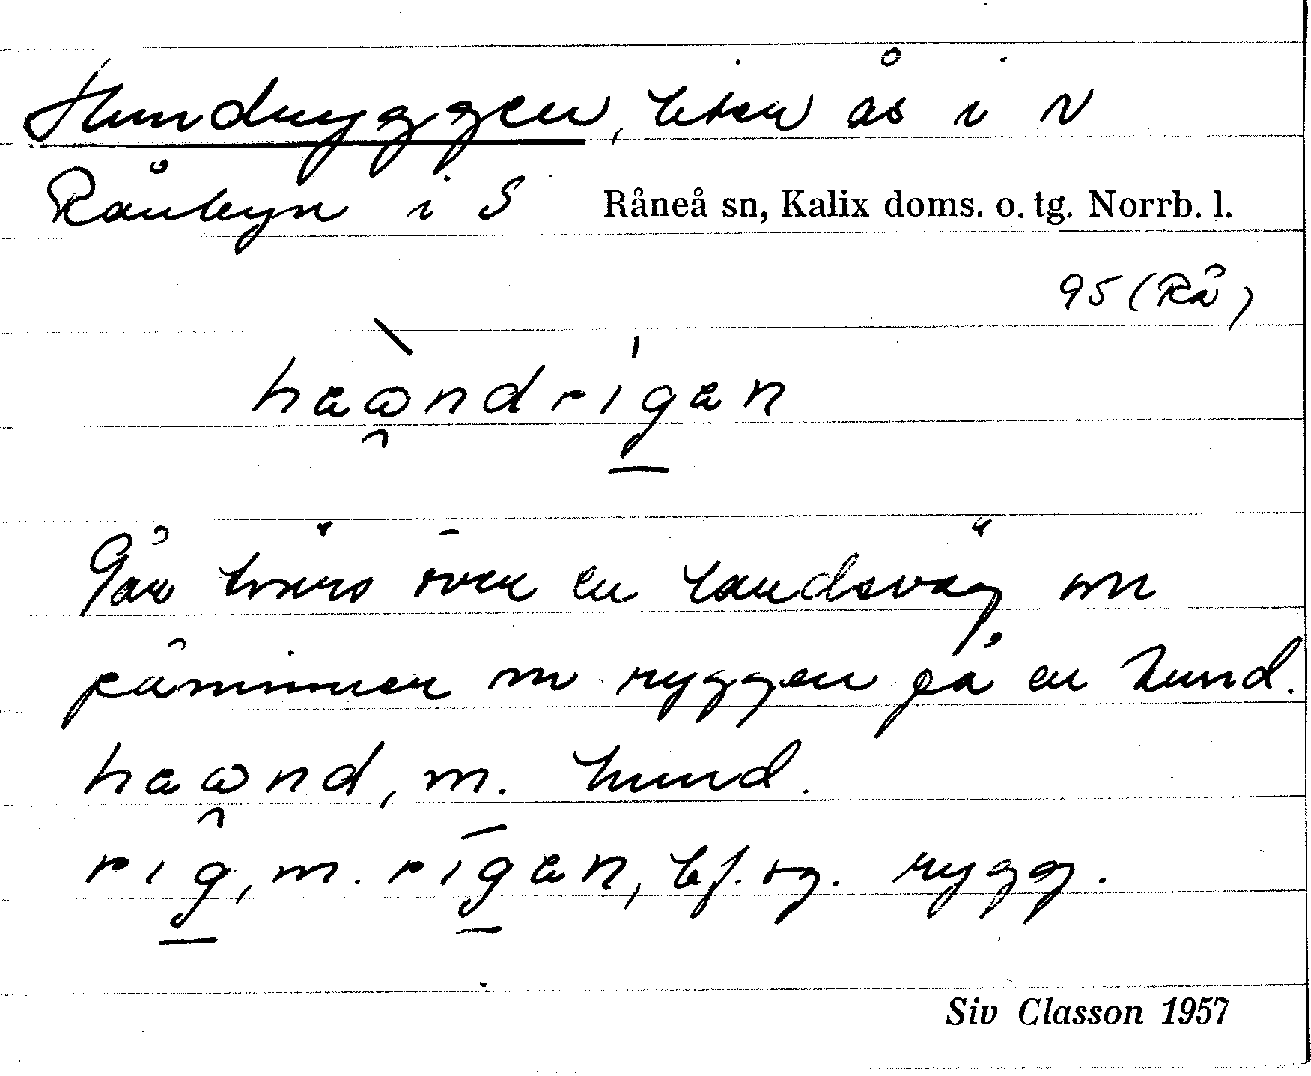 Hundryggen, liten ås i N
Rånbyn i S Råneå sn, Kalix doms. o. tg. Norrb. l.
95 (Rå)
haωndrigan
Går tvärs över en landsväg om
påminner om ryggen på en hund.
haωnd, m. hund.
rig, m. rigan, bf. sg. rygg.
Siv Classon 1957